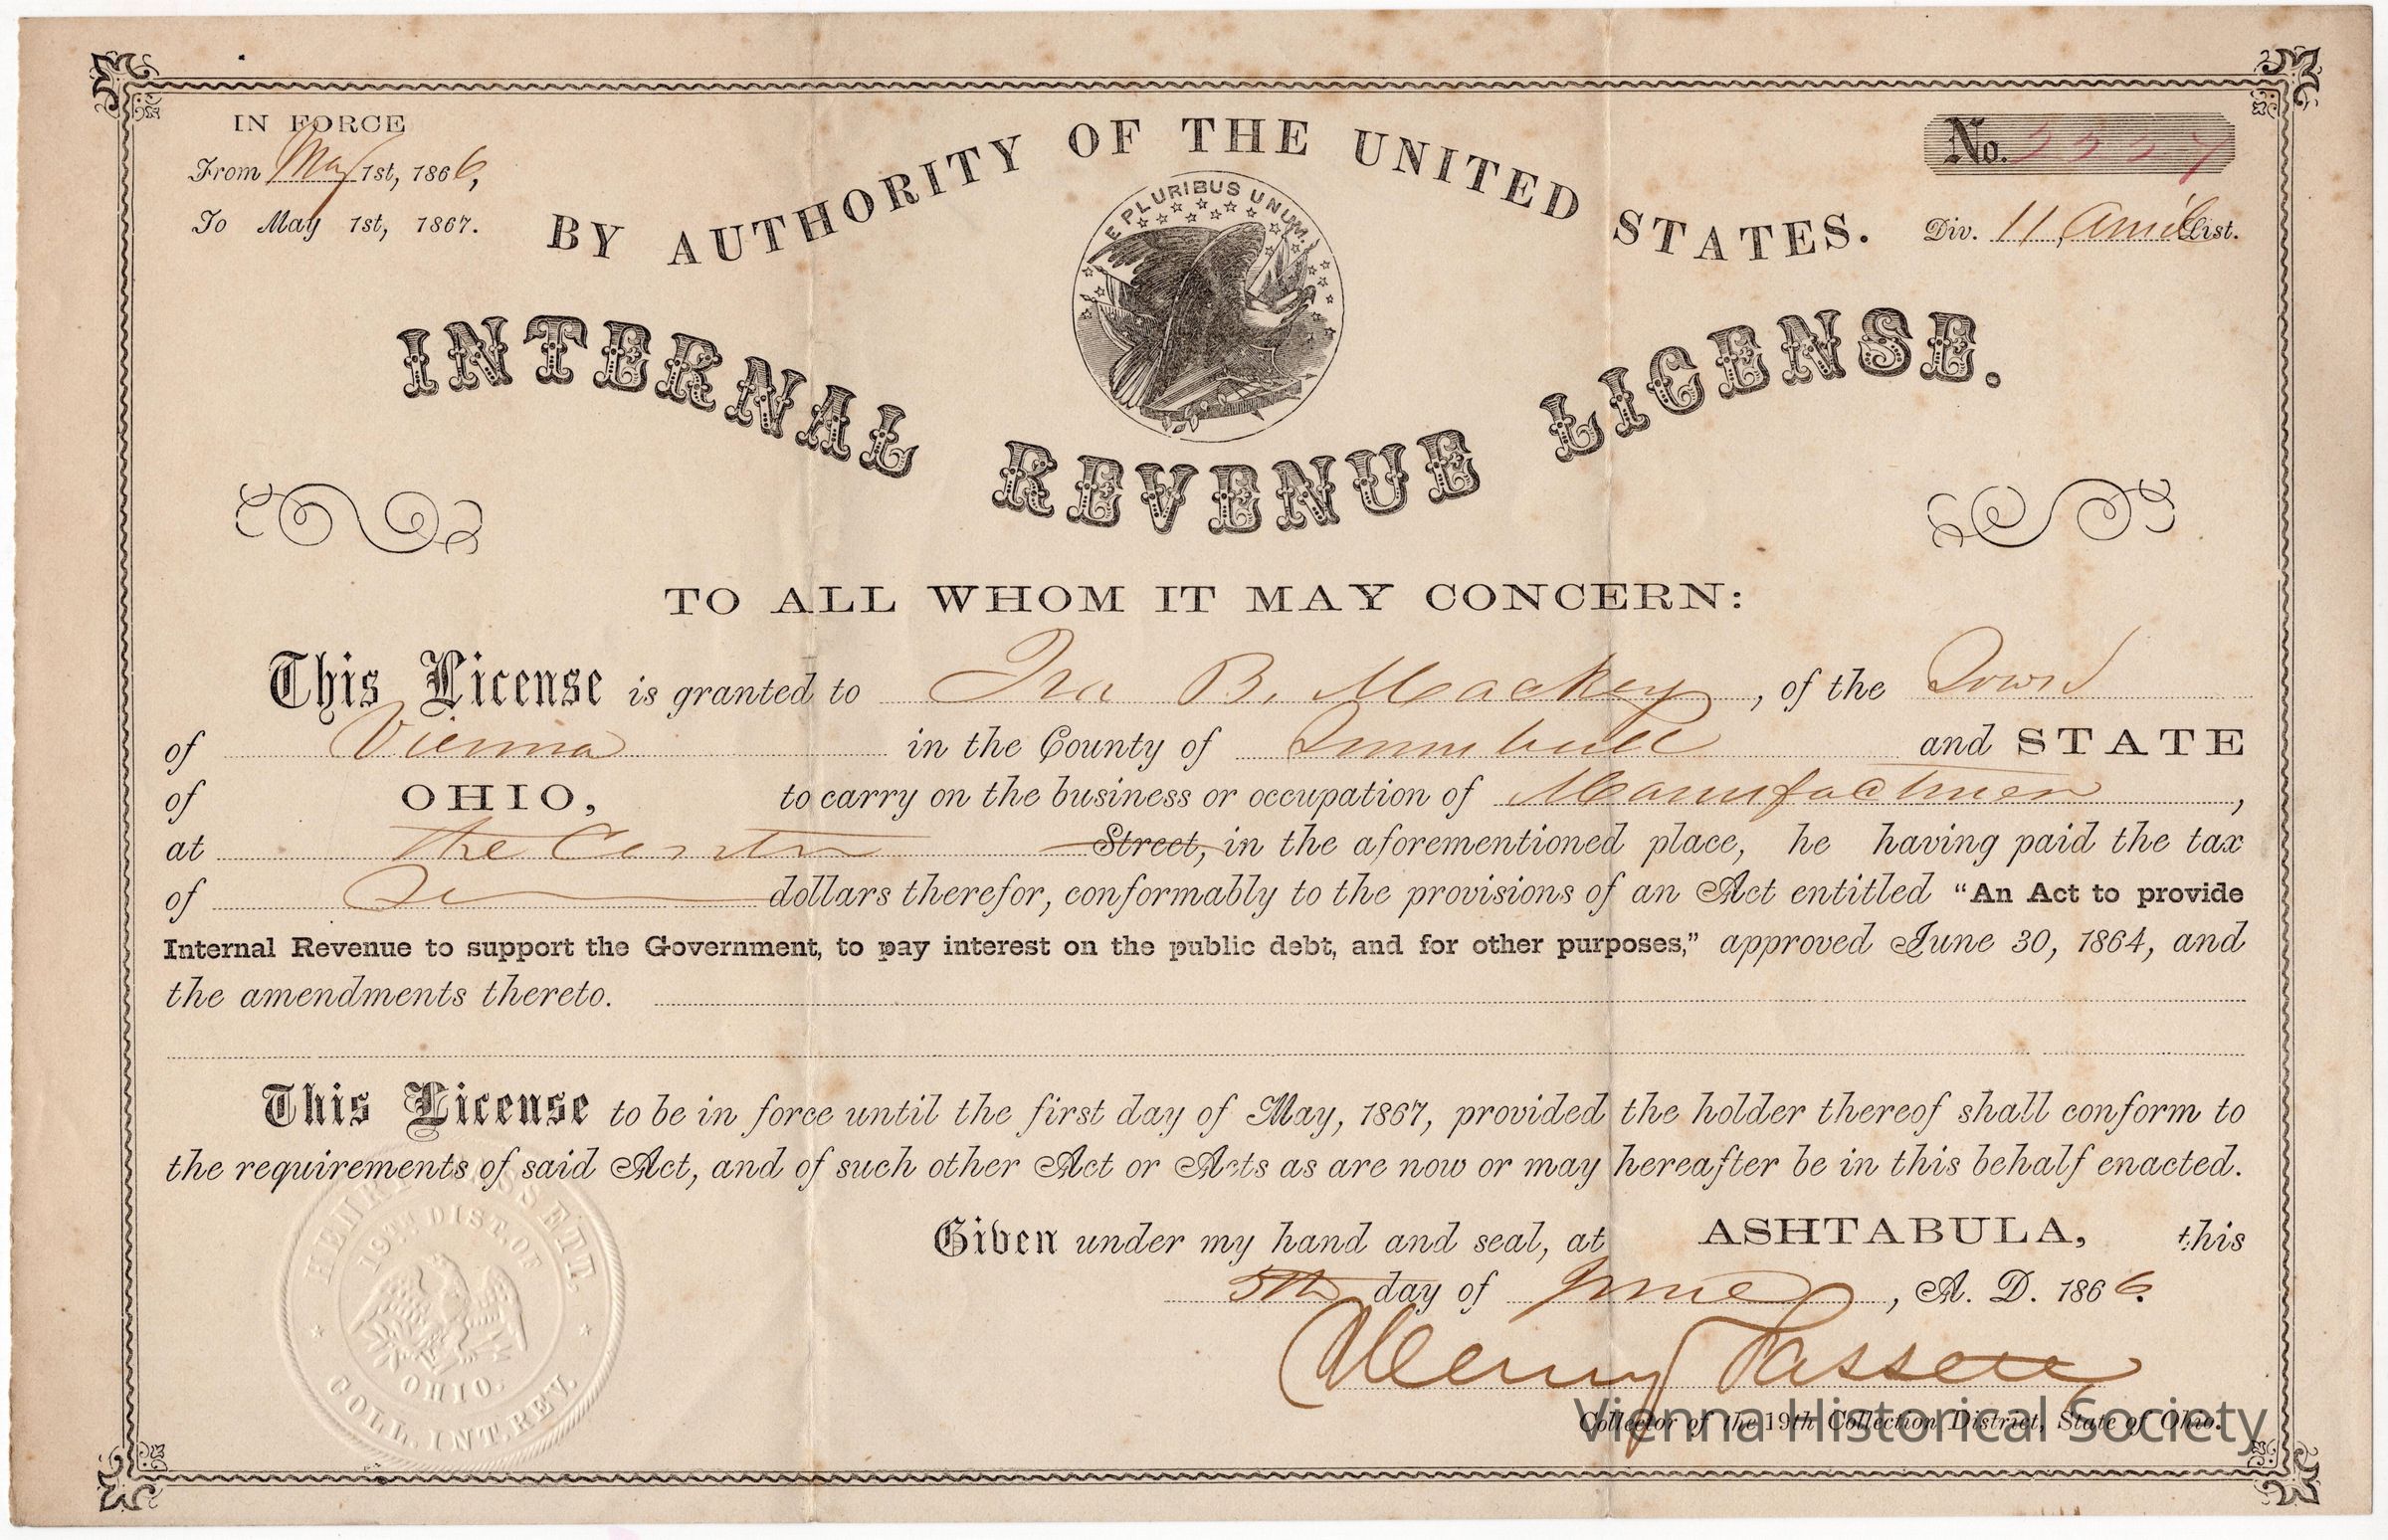 IN FORCE
From May 1st, 1866,
To May 1st, 1867.
No. 3337
Div. 11, List.
BY AUTHORITY OF THE UNITED STATES.
E PLURIBUS UNUM.
INTERNAL REVENUE LICENSE.
TO ALL WHOM IT MAY CONCERN:
This License is granted to Ira B. Mackey, of the Town
of Vienna in the County of Trumbull and STATE
of OHIO, to carry on the business or occupation of Manufacturer,
at the Center Street, in the aforementioned place, he having paid the tax
of Ten dollars therefor, conformably to the provisions of an Act entitled “An Act to provide
Internal Revenue to support the Government, to pay interest on the public debt, and for other purposes,” approved June 30, 1864, and
the amendments thereto.
This License to be in force until the first day of May, 1867, provided the holder thereof shall conform to
the requirements of said Act, and of such other Act or Acts as are now or may hereafter be in this behalf enacted.
Given under my hand and seal, at ASHTABULA, this
5th day of June, A. D. 1866.
Henry Fassett
Collector of the 19th Collection District, State of Ohio.
HENRY FASSETT.
19TH DIST. OF
OHIO.
COLL. INT. REV.
Vienna Historical Society